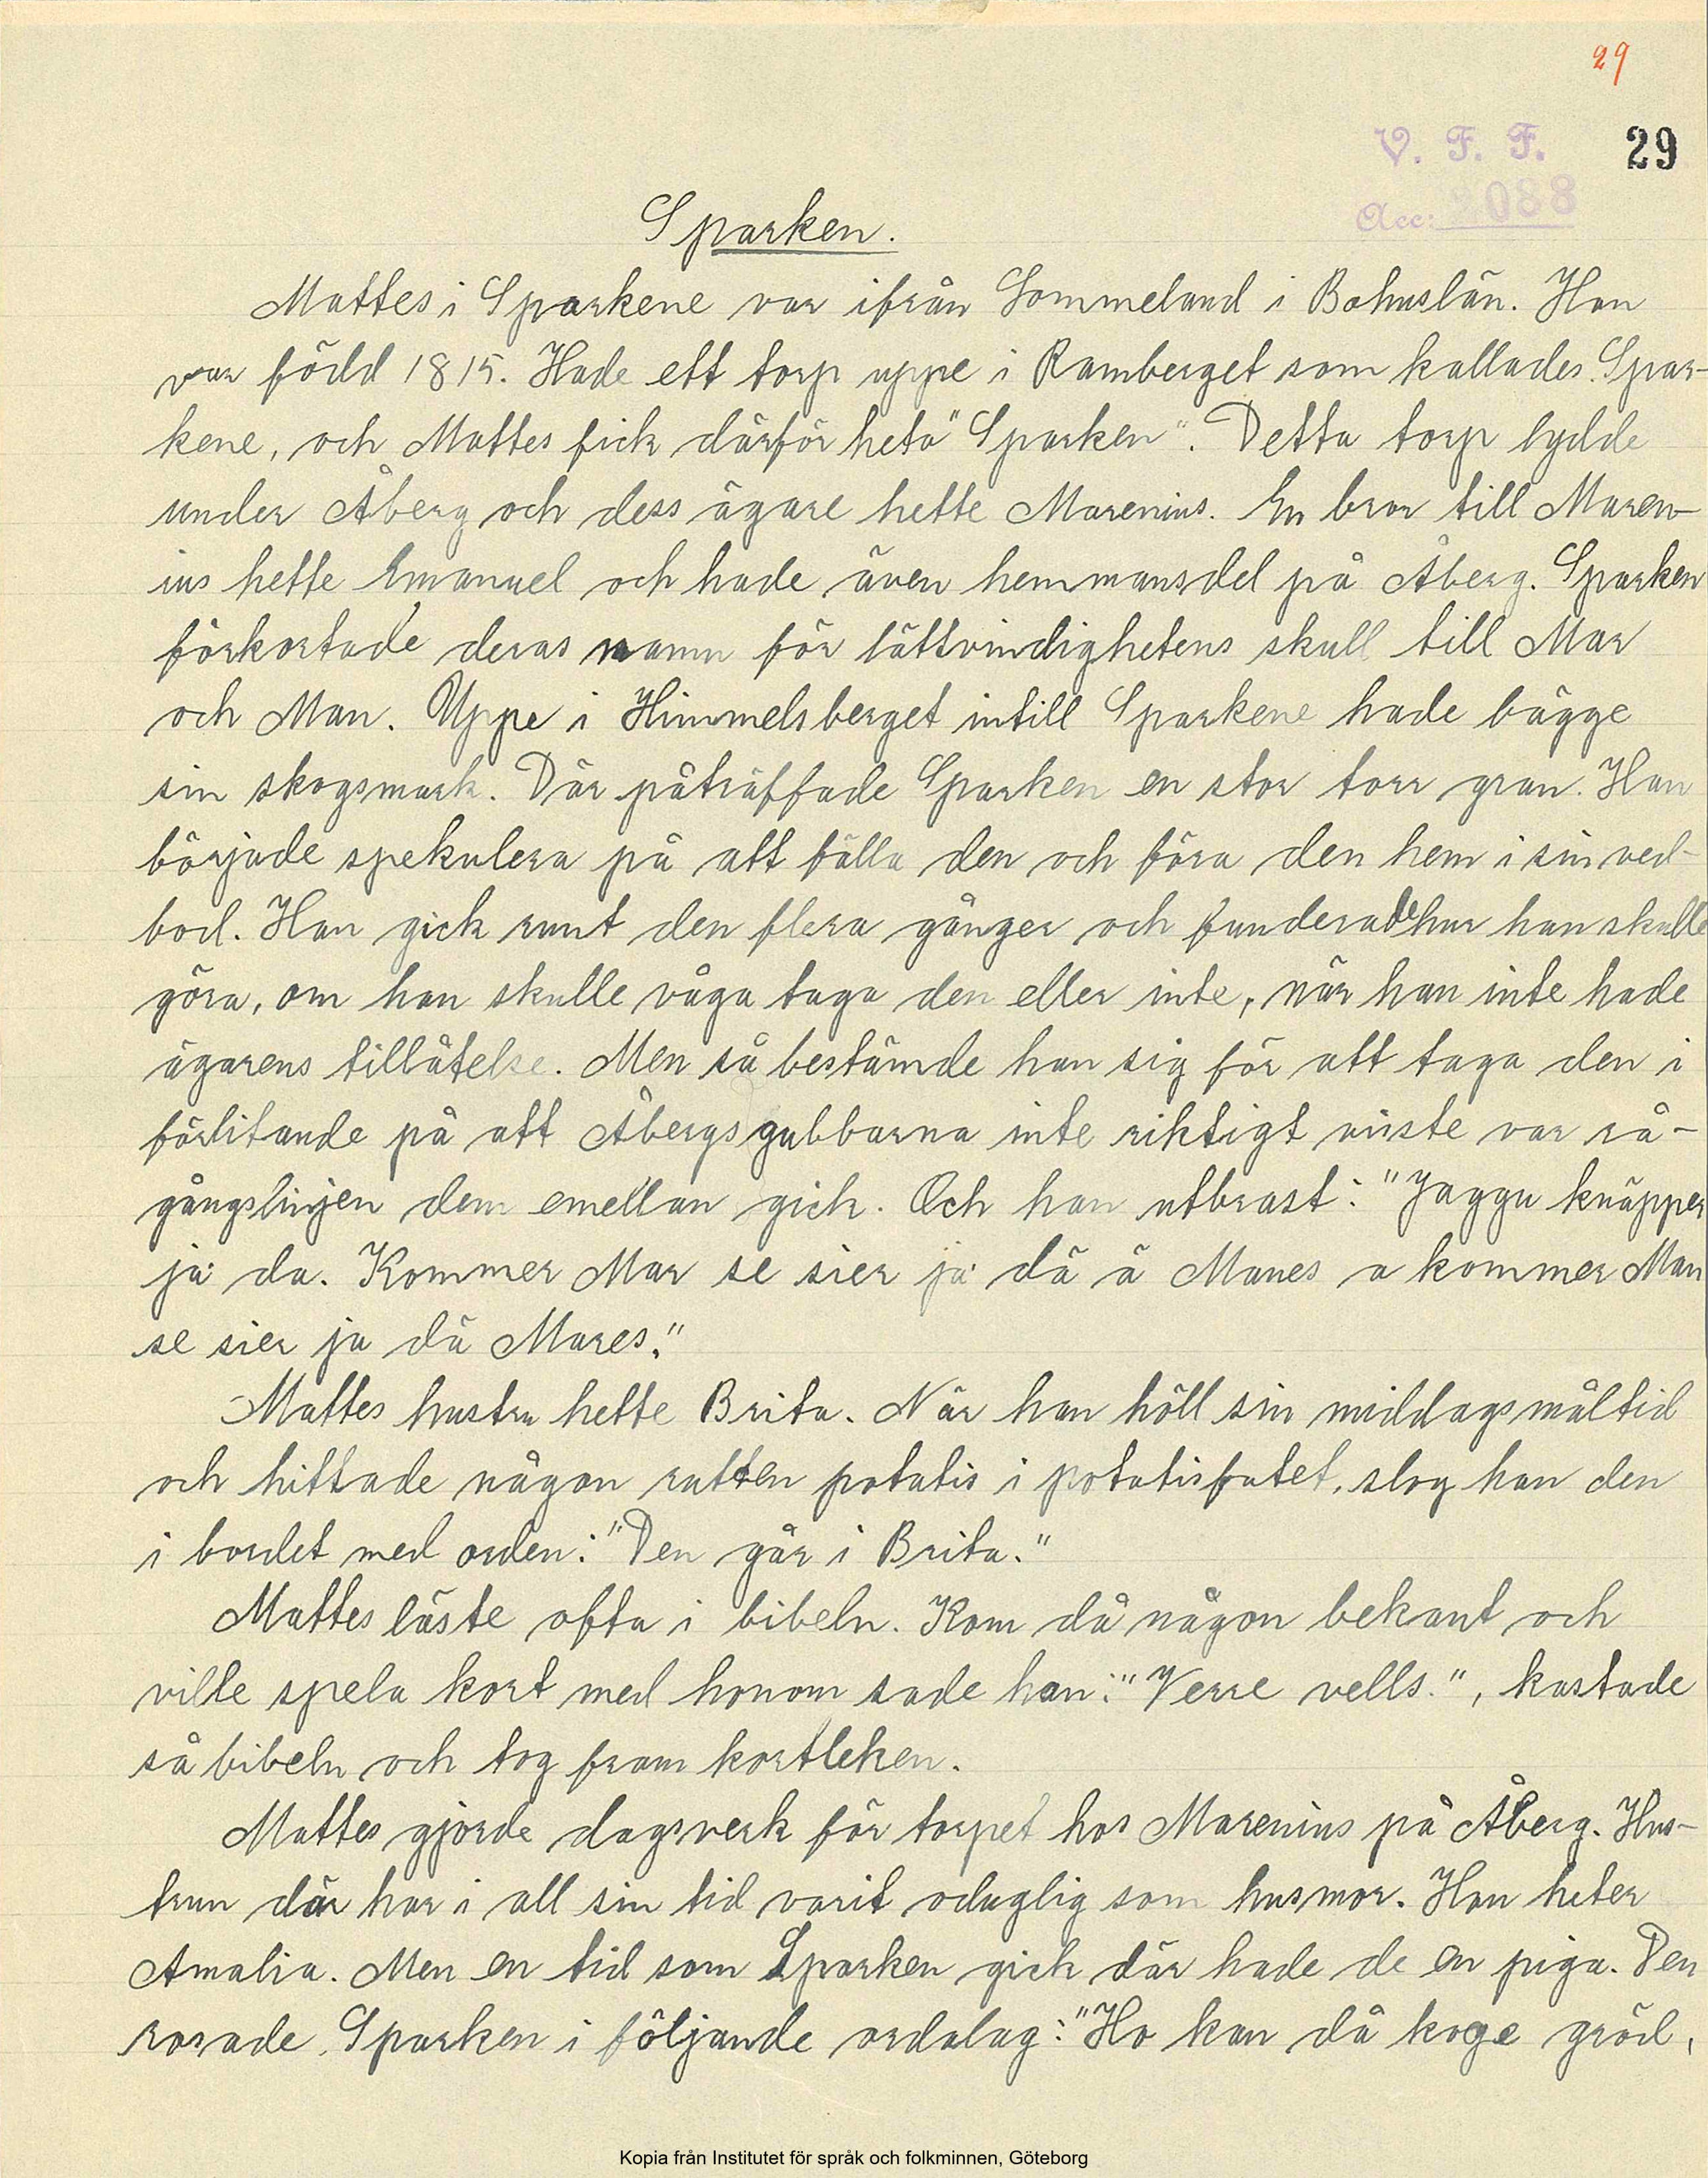 29
V. F. F. 29
Acc: 2088
Sparken.
Mattes i Sparkene var ifrån Sommeland i Bohuslän. Han
var född 1815. Hade ett torp uppe i Ramberget som kallades Spar-
kene, och Mattes fick därför heta "Sparken". Detta torp lydde
under Åberg och dess ägare hette Marenius. En bror till Maren-
ius hette Emanuel och hade även hemmansdel på Åberg. Sparken
förkortade deras namn för lättvindighetens skull till Mar
och Man. Uppe i Himmelsberget intill Sparkene hade bägge
sin skogsmark. Där påträffade Sparken en stor torr gran. Han
började spekulera på att fälla den och föra den hem i sin ved-
bod. Han gick runt den flera gånger och funderade hur han skulle
göra, om han skulle våga taga den eller inte, när han inte hade
ägarens tillåtelse. Men så bestämde han sig för att taga den i
förlitande på att Åbergsgubbarna inte riktigt visste var rå-
gångslinjen dem emellan gick. Och han utbrast: "Jaggu knäpper
ja da. Kommer Mar se sier ja dä ä Manes a kommer Man
se sier ja dä Mares."
Mattes hustru hette Brita. När han höll sin middagsmåltid
och hittade någon rutten potatis i potatisfatet, slog han den
i bordet med orden: "Den går i Brita."
Mattes läste ofta i bibeln. Kom då någon bekant och
ville spela kort med honom sade han: "Verre vells.", kastade
så bibeln och tog fram kortleken.
Mattes gjorde dagsverk för torpet hos Marenius på Åberg. Hus-
trun där har i all sin tid varit oduglig som husmor. Hon heter
Amalia. Men en tid som Sparken gick där hade de en piga. Den
rosade Sparken i följande ordalag: "Ho kan då koge gröd,
Kopia från Institutet för språk och folkminnen, Göteborg